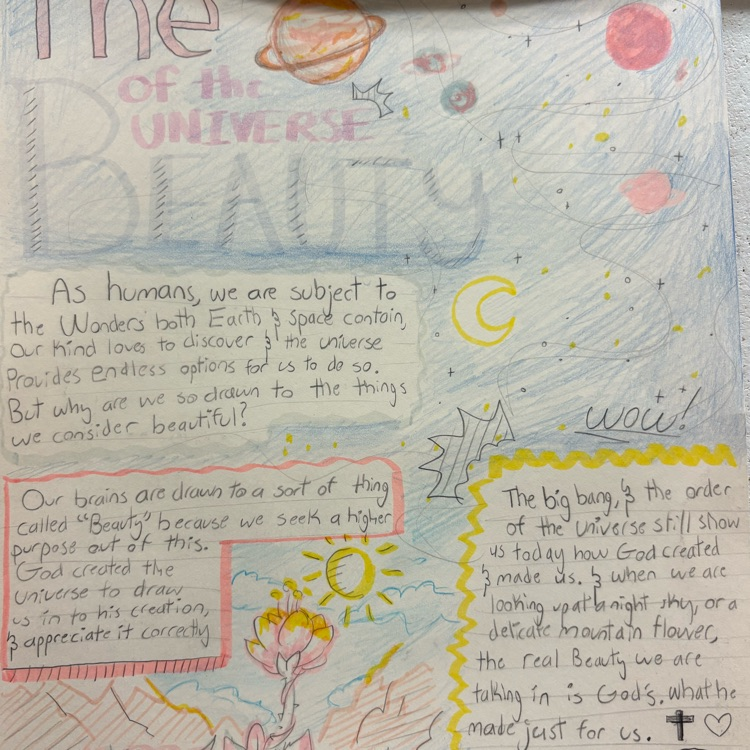 The
of the
UNIVERSE
BEAUTY
As humans, we are subject to
the Wonders both Earth & Space contain,
Our kind loves to discover & the universe
Provides endless options for us to do so.
But why are we so drawn to the things
we consider beautiful?
Our brains are drawn to a sort of thing
called "Beauty" because we seek a higher
purpose out of this.
God created the
universe to draw
us in to his creation,
& appreciate it correctly
wow!
The big bang, & the order
of the universe still show
us today how God created
& made us. & when we are
looking up at a night sky, or a
delicate mountain flower,
the real Beauty we are
taking in is God's. what he
made just for us.